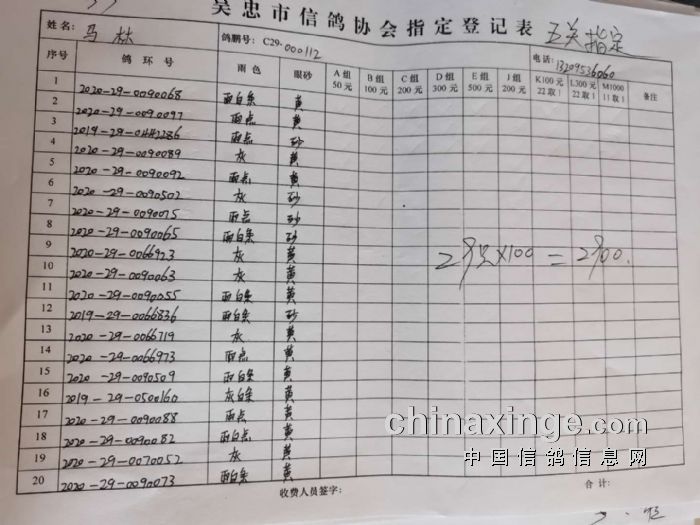 吴忠市信鸽协会指定登记表 五关指定
姓名: 马林 鸽鹏号: C29-000112 电话: 13209536060
序号 鸽环号 雨色 眼砂 A组 50元 B组 100元 C组 200元 D组 300元 E组 500元 J组 200元 K100元 22取1 L300元 22取1 M1000 11取1 备注
1 2020-29-0090068 雨白条 黄
2 2020-29-0090097 雨点 黄
3 2019-29-0442286 雨点 砂
4 2020-29-0090089 灰 黄
5 2020-29-0090092 雨点 黄
6 2020-29-0090502 灰 砂
7 2020-29-0090075 雨点 砂
8 2020-29-0090065 雨白条 砂
9 2020-29-0066923 灰 黄
10 2020-29-0090063 灰 黄
11 2020-29-0090055 雨白条 黄
12 2019-29-0066836 雨白条 砂
13 2020-29-0066719 灰 黄
14 2020-29-0066973 雨点 黄
15 2020-29-0090509 雨白条 黄
16 2019-29-0500160 灰白条 黄
17 2020-29-0090088 雨点 黄
18 2020-29-0090082 雨白点 黄
19 2020-29-0070052 灰 黄
20 2020-29-0090073 雨白条 黄
29只×100=2900.
收费人员签字: 合计:
chinaxinge.com
中国信鸽信息网